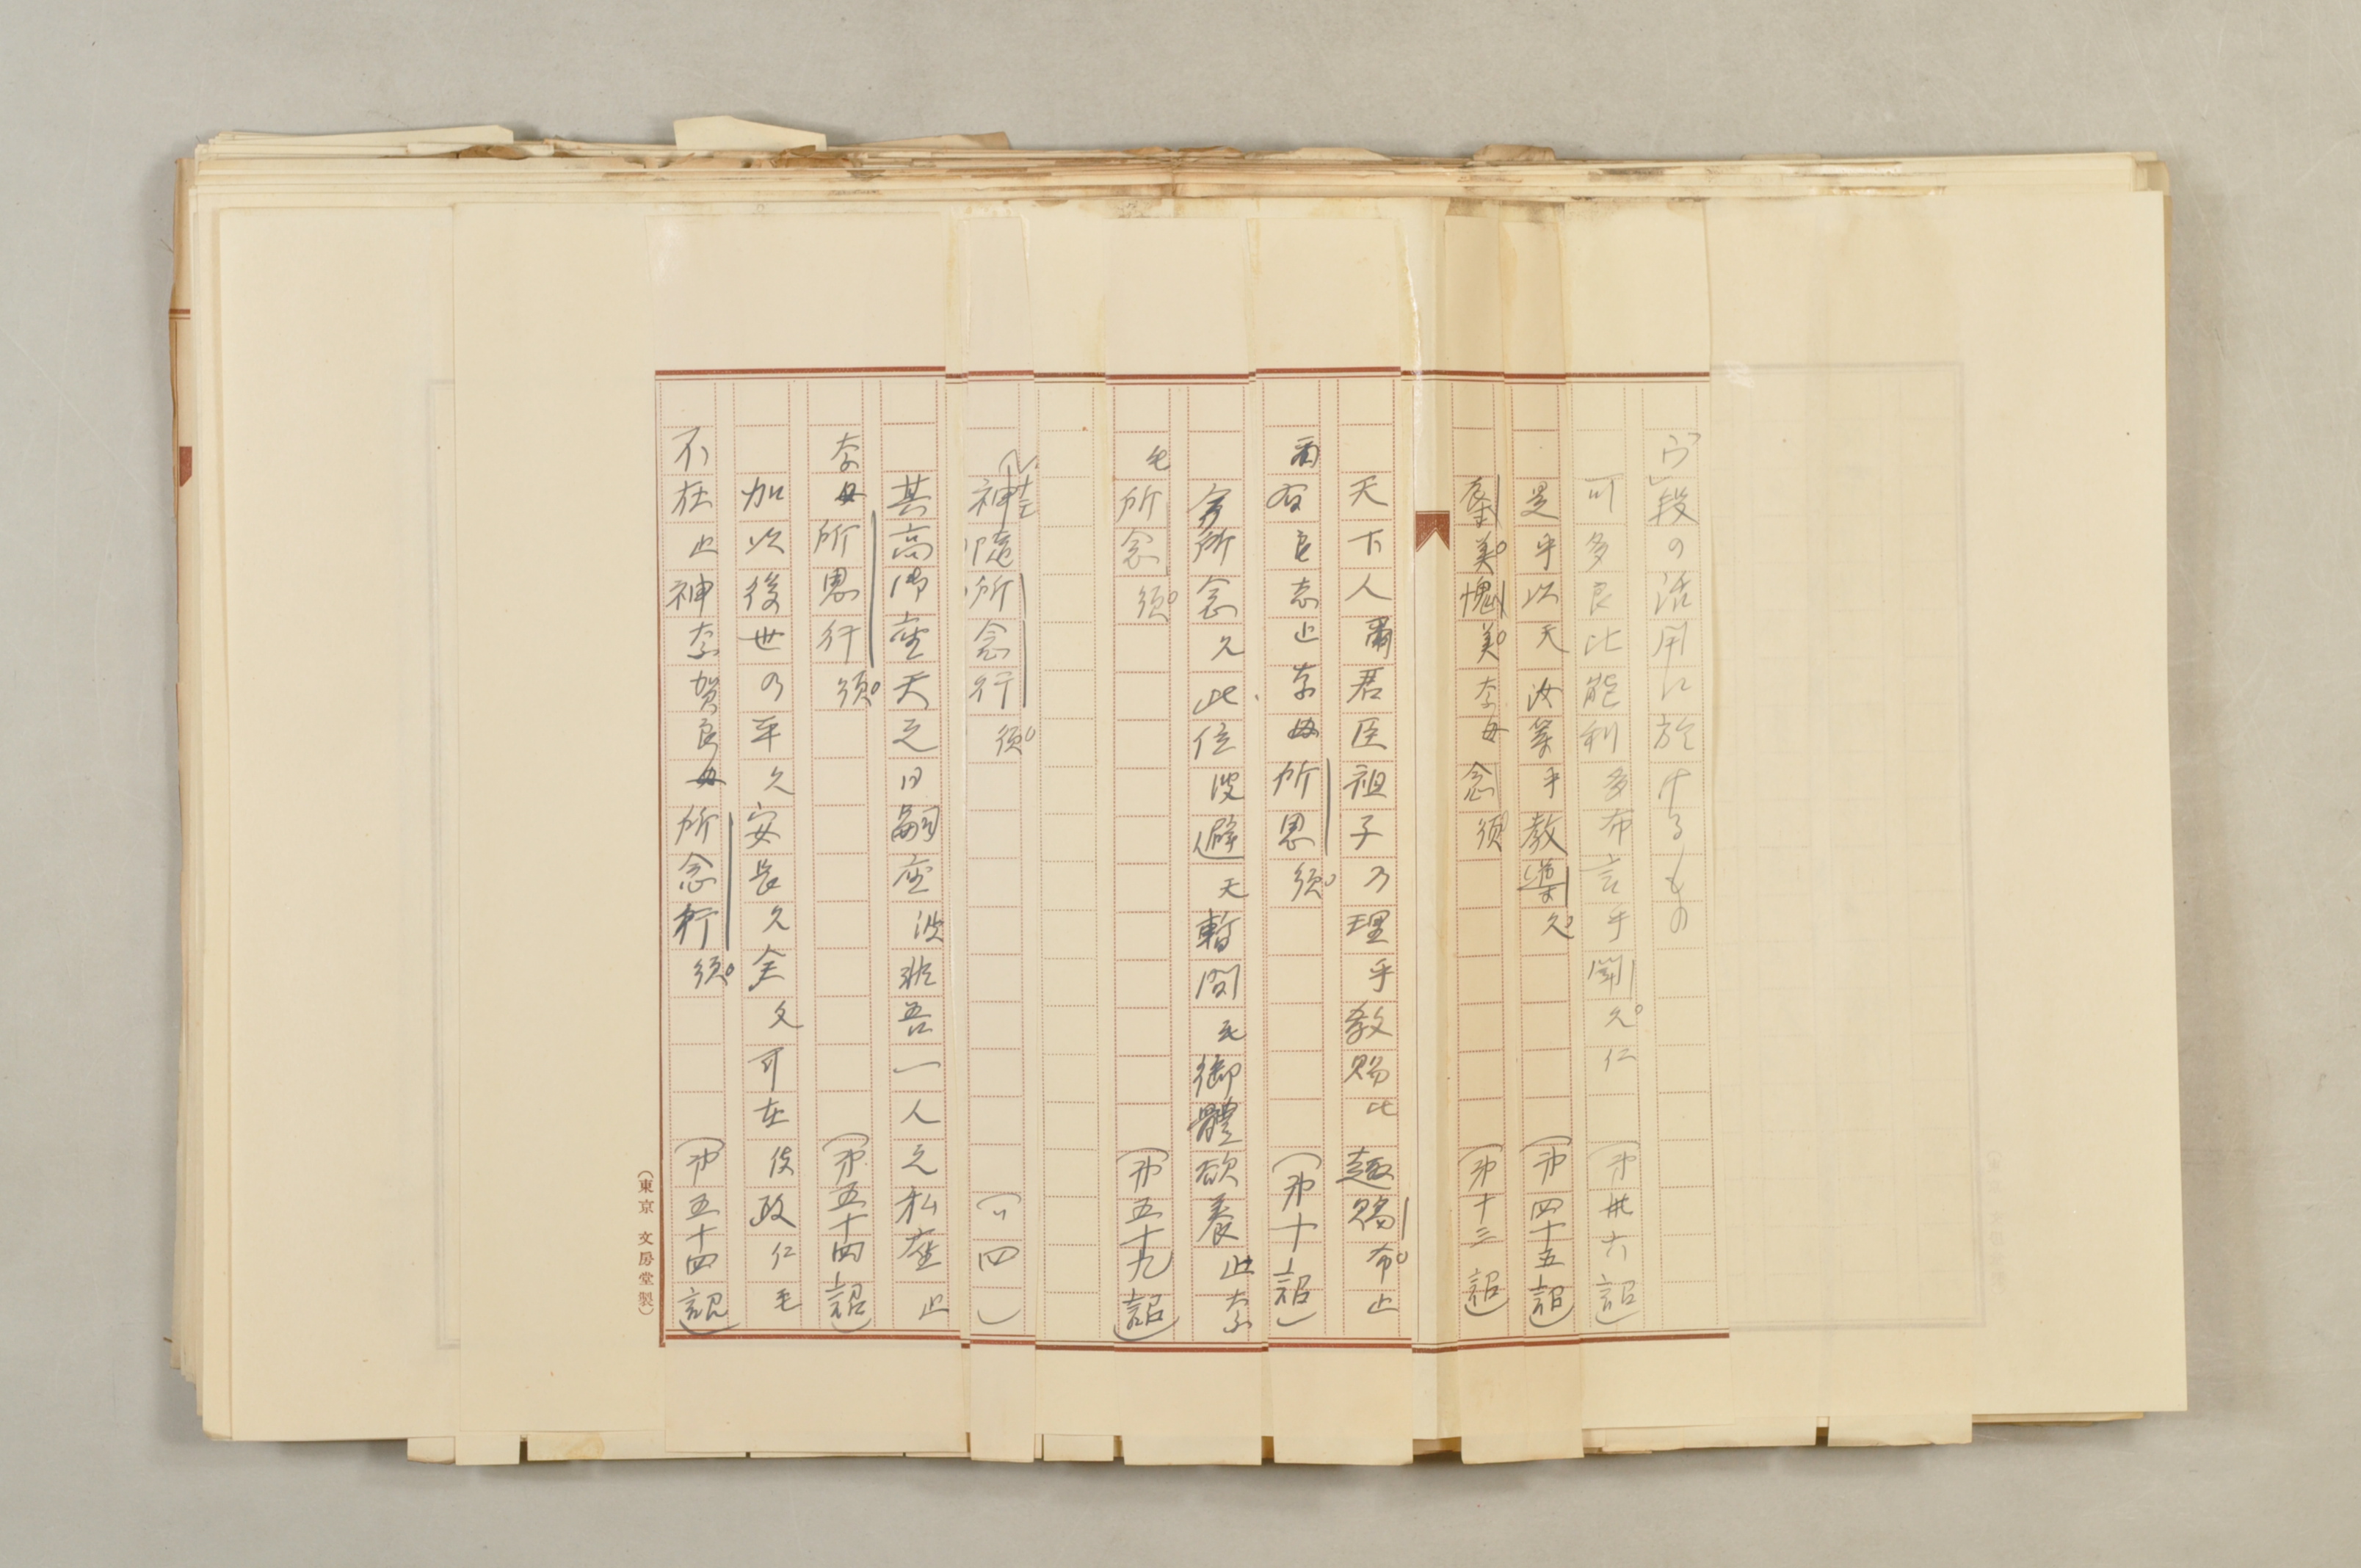 ウ」段の活用に於けるもの
可多良比能利多布言乎聞久仁(第卅六詔)
是乎以天汝等乎教導久(第四十五詔)
美愧美奈毋念須(第十三詔)
天下人爾君臣祖子乃理乎教賜比趣賜布止
爾有良志止奈毋所思須(第十詔)
所念久此位波避天暫間毛御體欲養止奈
毛所念須(第五十九詔)
神隨所念行須(〃四)
其高御座天之日嗣座波非吾一人之私座止
奈毋所思行須(第五十四詔)
加以後世乃平久安長久全久可在伎政仁毛
不在止神奈賀良毋所念行須(第五十四詔)
(東京 文房堂製)